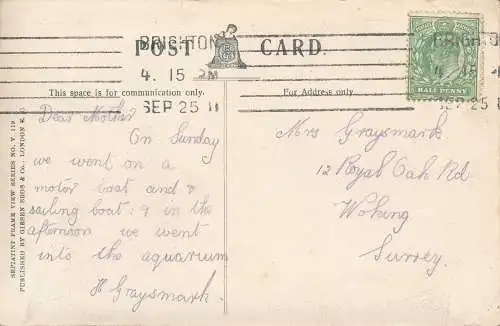 POST CARD.
BRIGHTON
4. 15 PM
SEP 25 11
BRIGHTON
4. 15
SEP 25
HALF PENNY
This space is for communication only.
For Address only
Dear Mother
On Sunday
we went on a
motor boat and a
sailing boat: & in the
afternoon we went
into the aquarium
H Graysmark.
Mrs Graysmark
12 Royal Oak Rd
Woking
Surrey.
SEPIATINT FRAME VIEW SERIES NO. V. 119
PUBLISHED BY GIBSEN BROS & Co., LONDON